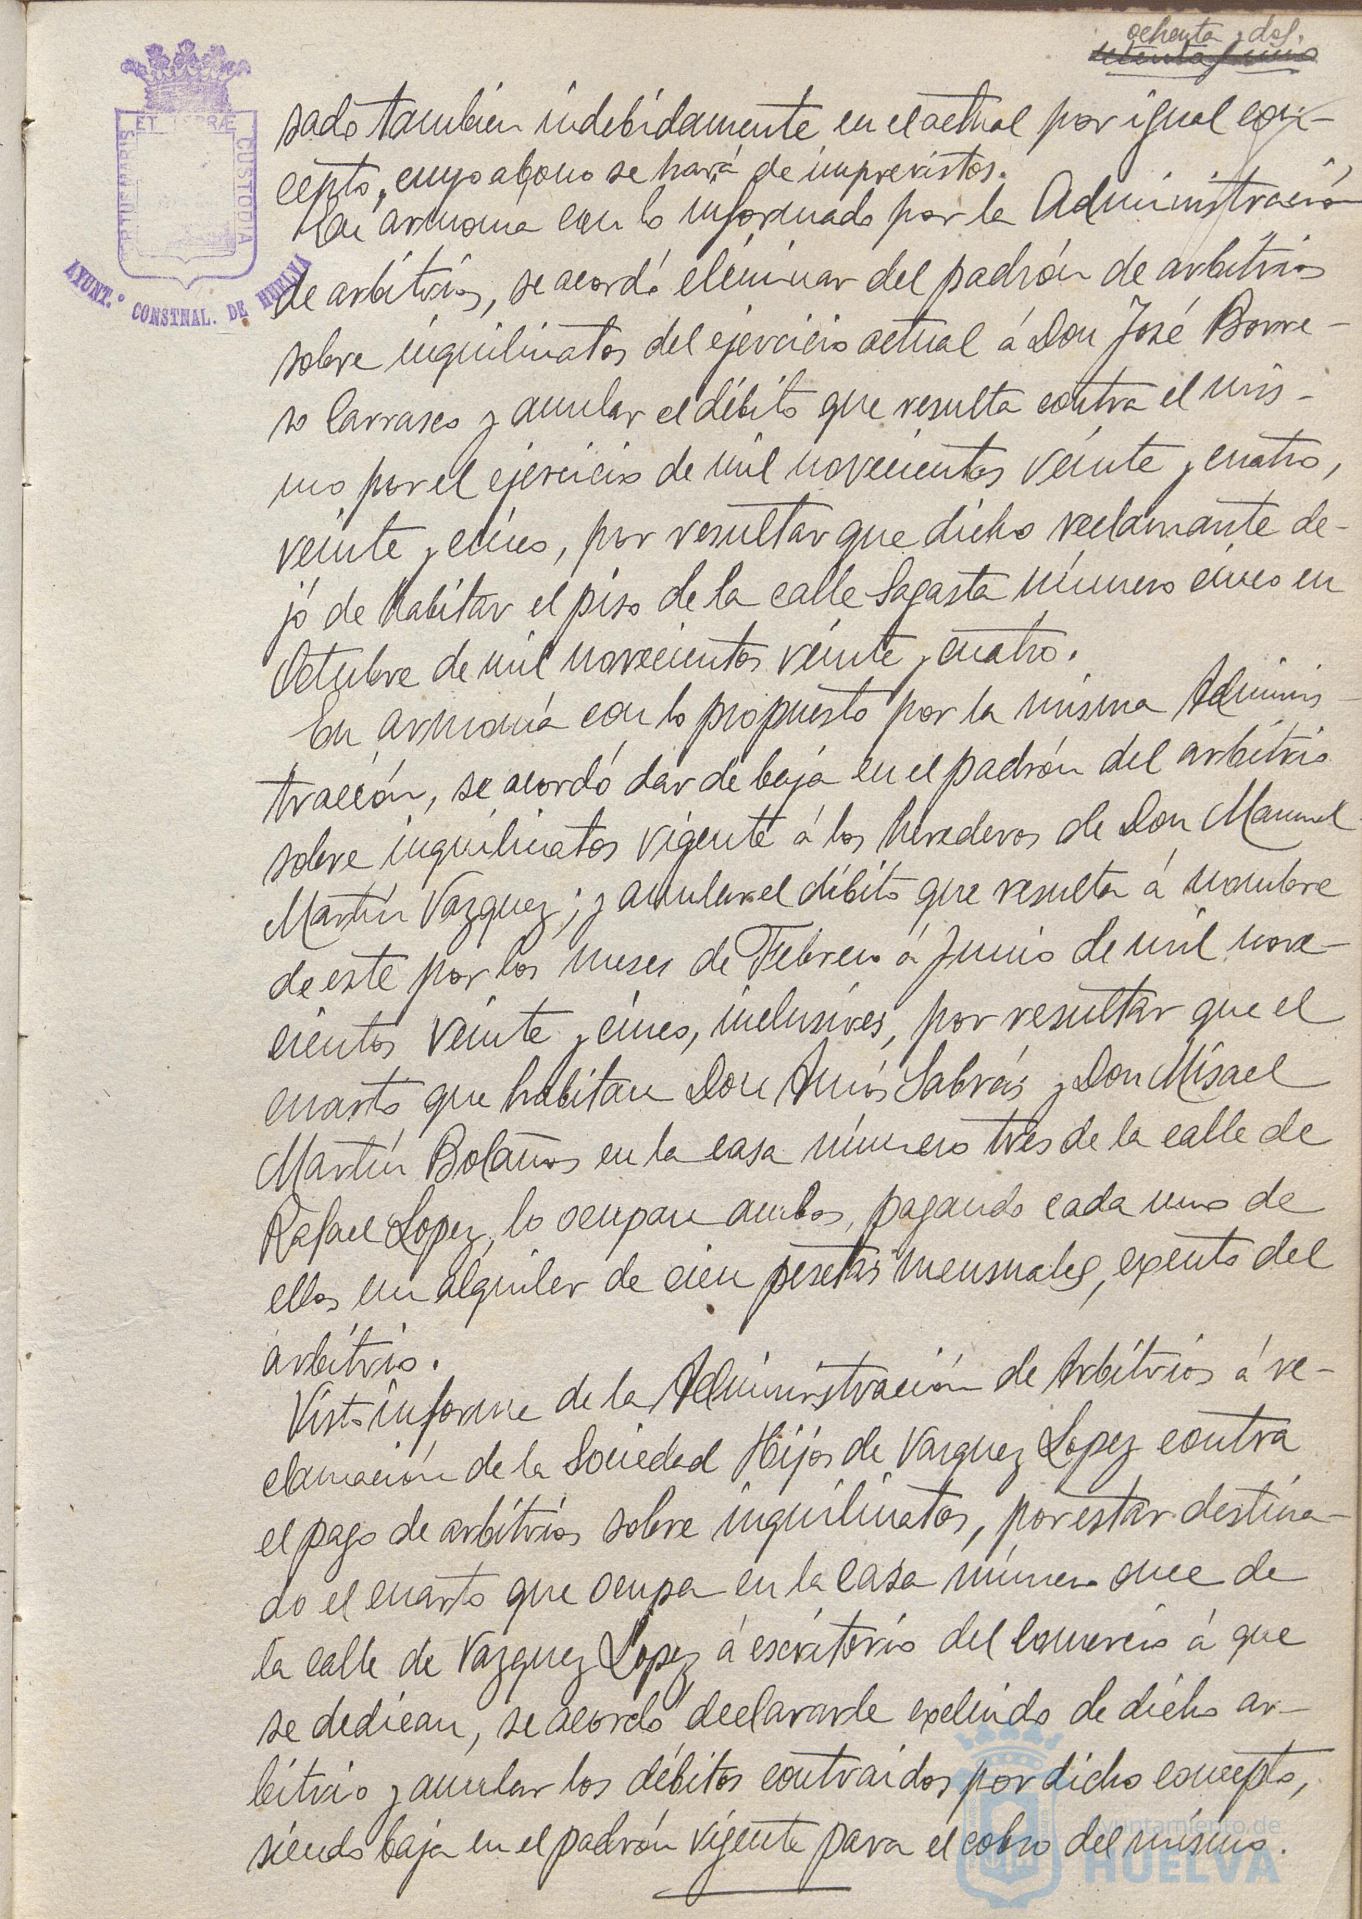 ochenta y dos.
setenta y uno
PORTUS MARIS
ET TERRÆ
CUSTODIA
AYUNT.º CONSTNAL. DE HUELVA
sado también indebidamente en el actual por igual con-
cepto, cuyo abono se hará de imprevistos.
En armonía con lo informado por la Administración
de arbitrios, se acordó eliminar del padrón de arbitrios
sobre inquilinatos del ejercicio actual á Don José Borre-
ro Carrasco y anular el débito que resulta contra el mis-
mo por el ejercicio de mil novecientos veinte y cuatro,
veinte y cinco, por resultar que dicho reclamante de-
jó de habitar el piso de la calle Sagasta número cinco en
Octubre de mil novecientos veinte y cuatro.
En armonía con lo propuesto por la misma Adminis-
tración, se acordó dar de baja en el padrón del arbitrio
sobre inquilinatos vigente á los herederos de Don Manuel
Martín Vazquez; y anular el débito que resulta á nombre
de este por los meses de Febrero á Junio de mil nove-
cientos veinte y cinco, inclusives, por resultar que el
cuarto que habitan Don Amós Sabrás y Don Misael
Martín Bolaños en la casa número tres de la calle de
Rafael Lopez, lo ocupan ambos, pagando cada uno de
ellos un alquiler de cien pesetas mensuales, exento del
arbitrio.
Visto informe de la Administración de Arbitrios á re-
clamación de la Sociedad Hijos de Vazquez Lopez contra
el pago de arbitrios sobre inquilinatos, por estar destina-
do el cuarto que ocupa en la casa número once de
la calle de Vazquez Lopez á escritorio del comercio á que
se dedican, se acordó declararle excluido de dicho ar-
bitrio y anular los débitos contraidos por dicho concepto,
siendo baja en el padrón vigente para el cobro del mismo.
Ayuntamiento de
HUELVA